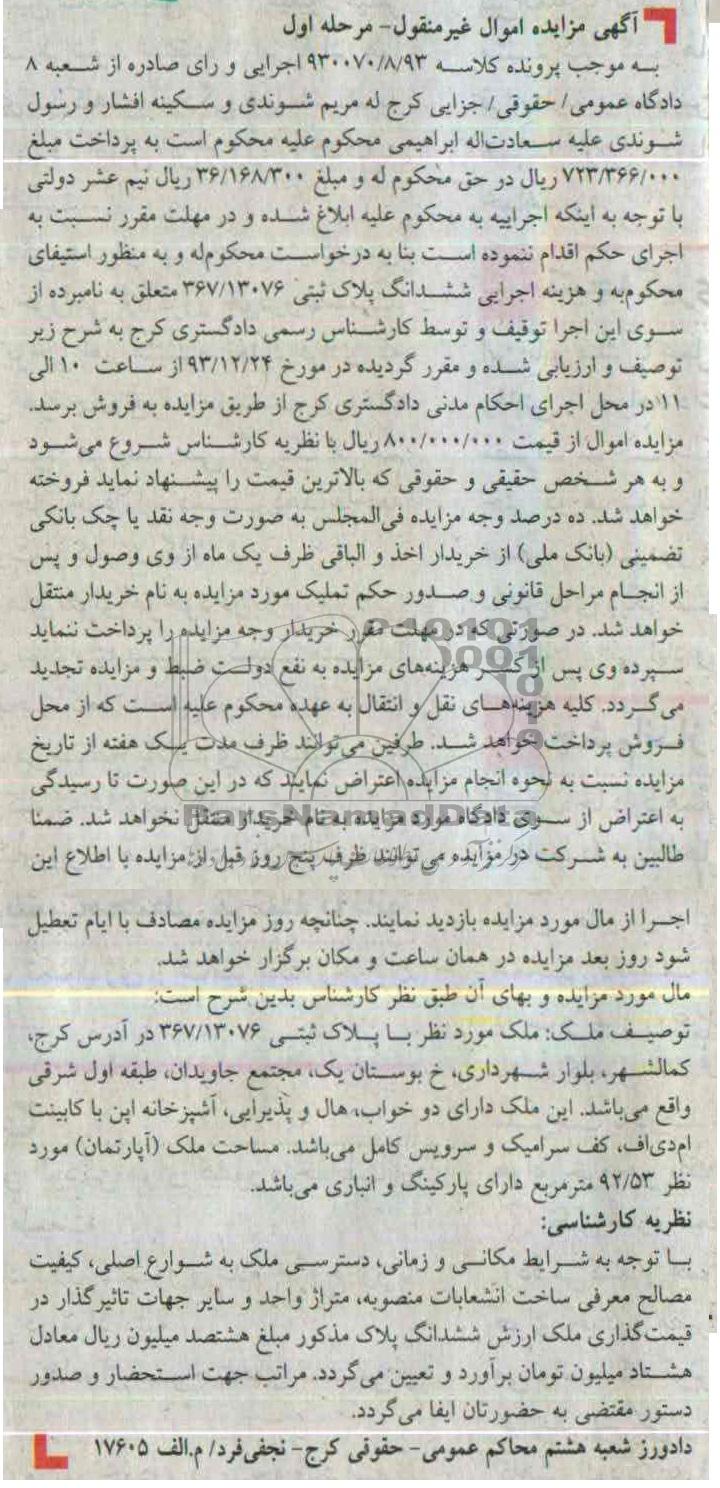 آگهی مزایده اموال غیرمنقول- مرحله اول
به موجب پرونده کلاسه ۹۳۰۰۷۰/۸/۹۳ اجرایی و رای صادره از شعبه ۸
دادگاه عمومی/ حقوقی/ جزایی کرج له مریم شوندی و سکینه افشار و رسول
شوندی علیه سعادت‌اله ابراهیمی محکوم علیه محکوم است به پرداخت مبلغ
۷۲۳/۳۶۶/۰۰۰ ریال در حق محکوم له و مبلغ ۳۶/۱۶۸/۳۰۰ ریال نیم عشر دولتی
با توجه به اینکه اجراییه به محکوم علیه ابلاغ شده و در مهلت مقرر نسبت به
اجرای حکم اقدام ننموده است بنا به درخواست محکوم‌له و به منظور استیفای
محکوم‌به و هزینه اجرایی ششدانگ پلاک ثبتی ۳۶۷/۱۳۰۷۶ متعلق به نامبرده از
سوی این اجرا توقیف و توسط کارشناس رسمی دادگستری کرج به شرح زیر
توصیف و ارزیابی شده و مقرر گردیده در مورخ ۹۳/۱۲/۲۴ از ساعت ۱۰ الی
۱۱ در محل اجرای احکام مدنی دادگستری کرج از طریق مزایده به فروش برسد.
مزایده اموال از قیمت ۸۰۰/۰۰۰/۰۰۰ ریال با نظریه کارشناس شروع می‌شود
و به هر شخص حقیقی و حقوقی که بالاترین قیمت را پیشنهاد نماید فروخته
خواهد شد. ده درصد وجه مزایده فی‌المجلس به صورت وجه نقد یا چک بانکی
تضمینی (بانک ملی) از خریدار اخذ و الباقی ظرف یک ماه از وی وصول و پس
از انجام مراحل قانونی و صدور حکم تملیک مورد مزایده به نام خریدار منتقل
خواهد شد. در صورتی که در مهلت مقرر خریدار وجه مزایده را پرداخت ننماید
سپرده وی پس از کسر هزینه‌های مزایده به نفع دولت ضبط و مزایده تجدید
می‌گردد. کلیه هزینه‌های نقل و انتقال به عهده محکوم علیه است که از محل
فروش پرداخت خواهد شد. طرفین می‌توانند ظرف مدت یک هفته از تاریخ
مزایده نسبت به نحوه انجام مزایده اعتراض نمایند که در این صورت تا رسیدگی
به اعتراض از سوی دادگاه مورد مزایده به نام خریدار منتقل نخواهد شد. ضمنا
طالبین به شرکت در مزایده می‌توانند ظرف پنج روز قبل از مزایده با اطلاع این
اجرا از مال مورد مزایده بازدید نمایند. چنانچه روز مزایده مصادف با ایام تعطیل
شود روز بعد مزایده در همان ساعت و مکان برگزار خواهد شد.
مال مورد مزایده و بهای آن طبق نظر کارشناس بدین شرح است:
توصیف ملک: ملک مورد نظر با پلاک ثبتی ۳۶۷/۱۳۰۷۶ در آدرس کرج،
کمالشهر، بلوار شهرداری، خ بوستان یک، مجتمع جاویدان، طبقه اول شرقی
واقع می‌باشد. این ملک دارای دو خواب، هال و پذیرایی، آشپزخانه اپن با کابینت
ام‌دی‌اف، کف سرامیک و سرویس کامل می‌باشد. مساحت ملک (آپارتمان) مورد
نظر ۹۲/۵۳ مترمربع دارای پارکینگ و انباری می‌باشد.
نظریه کارشناسی:
با توجه به شرایط مکانی و زمانی، دسترسی ملک به شوارع اصلی، کیفیت
مصالح معرفی ساخت انشعابات منصوبه، متراژ واحد و سایر جهات تاثیرگذار در
قیمت‌گذاری ملک ارزش ششدانگ پلاک مذکور مبلغ هشتصد میلیون ریال معادل
هشتاد میلیون تومان برآورد و تعیین می‌گردد. مراتب جهت استحضار و صدور
دستور مقتضی به حضورتان ایفا می‌گردد.
دادورز شعبه هشتم محاکم عمومی- حقوقی کرج- نجفی‌فرد/ م.الف ۱۷۶۰۵
ParsNamadData